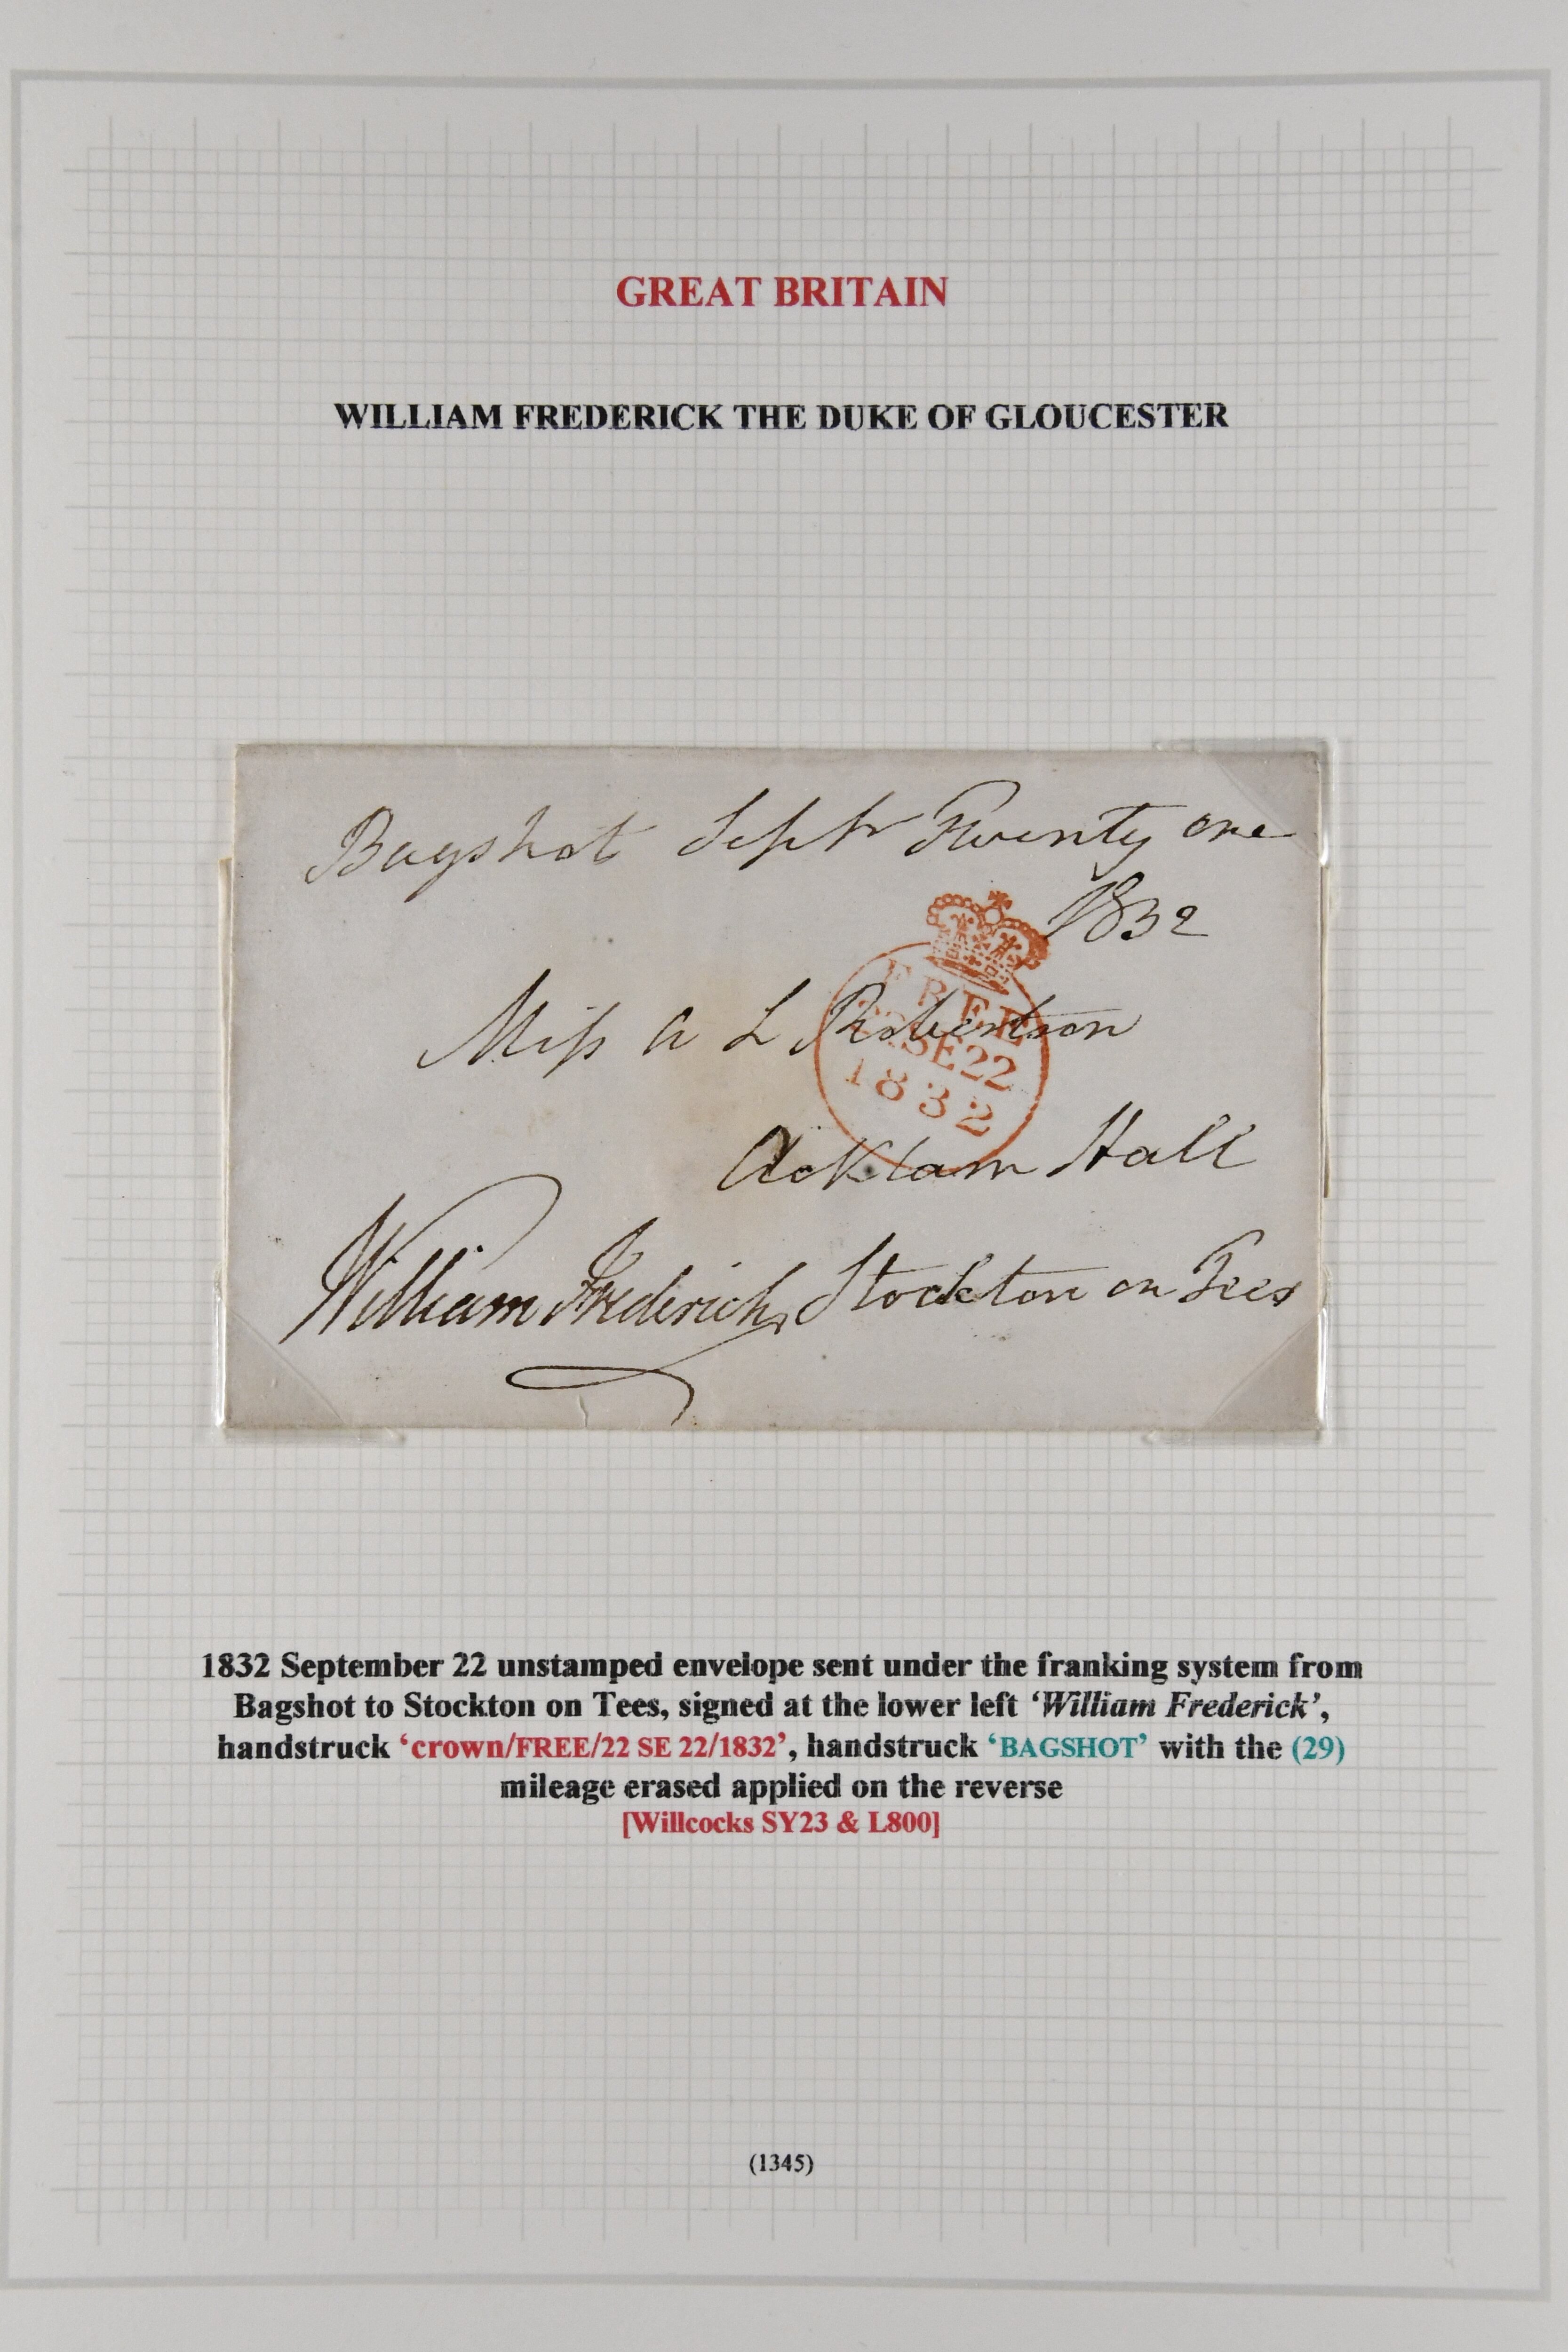 GREAT BRITAIN
WILLIAM FREDERICK THE DUKE OF GLOUCESTER
Bagshot Septr Twenty one
1832
Miss A L Robertson
FREE
22SE22
1832
Acklam Hall
William Frederick Stockton on Tees
1832 September 22 unstamped envelope sent under the franking system from
Bagshot to Stockton on Tees, signed at the lower left ‘William Frederick’,
handstruck ‘crown/FREE/22 SE 22/1832’, handstruck ‘BAGSHOT’ with the (29)
mileage erased applied on the reverse
[Willcocks SY23 & L800]
(1345)